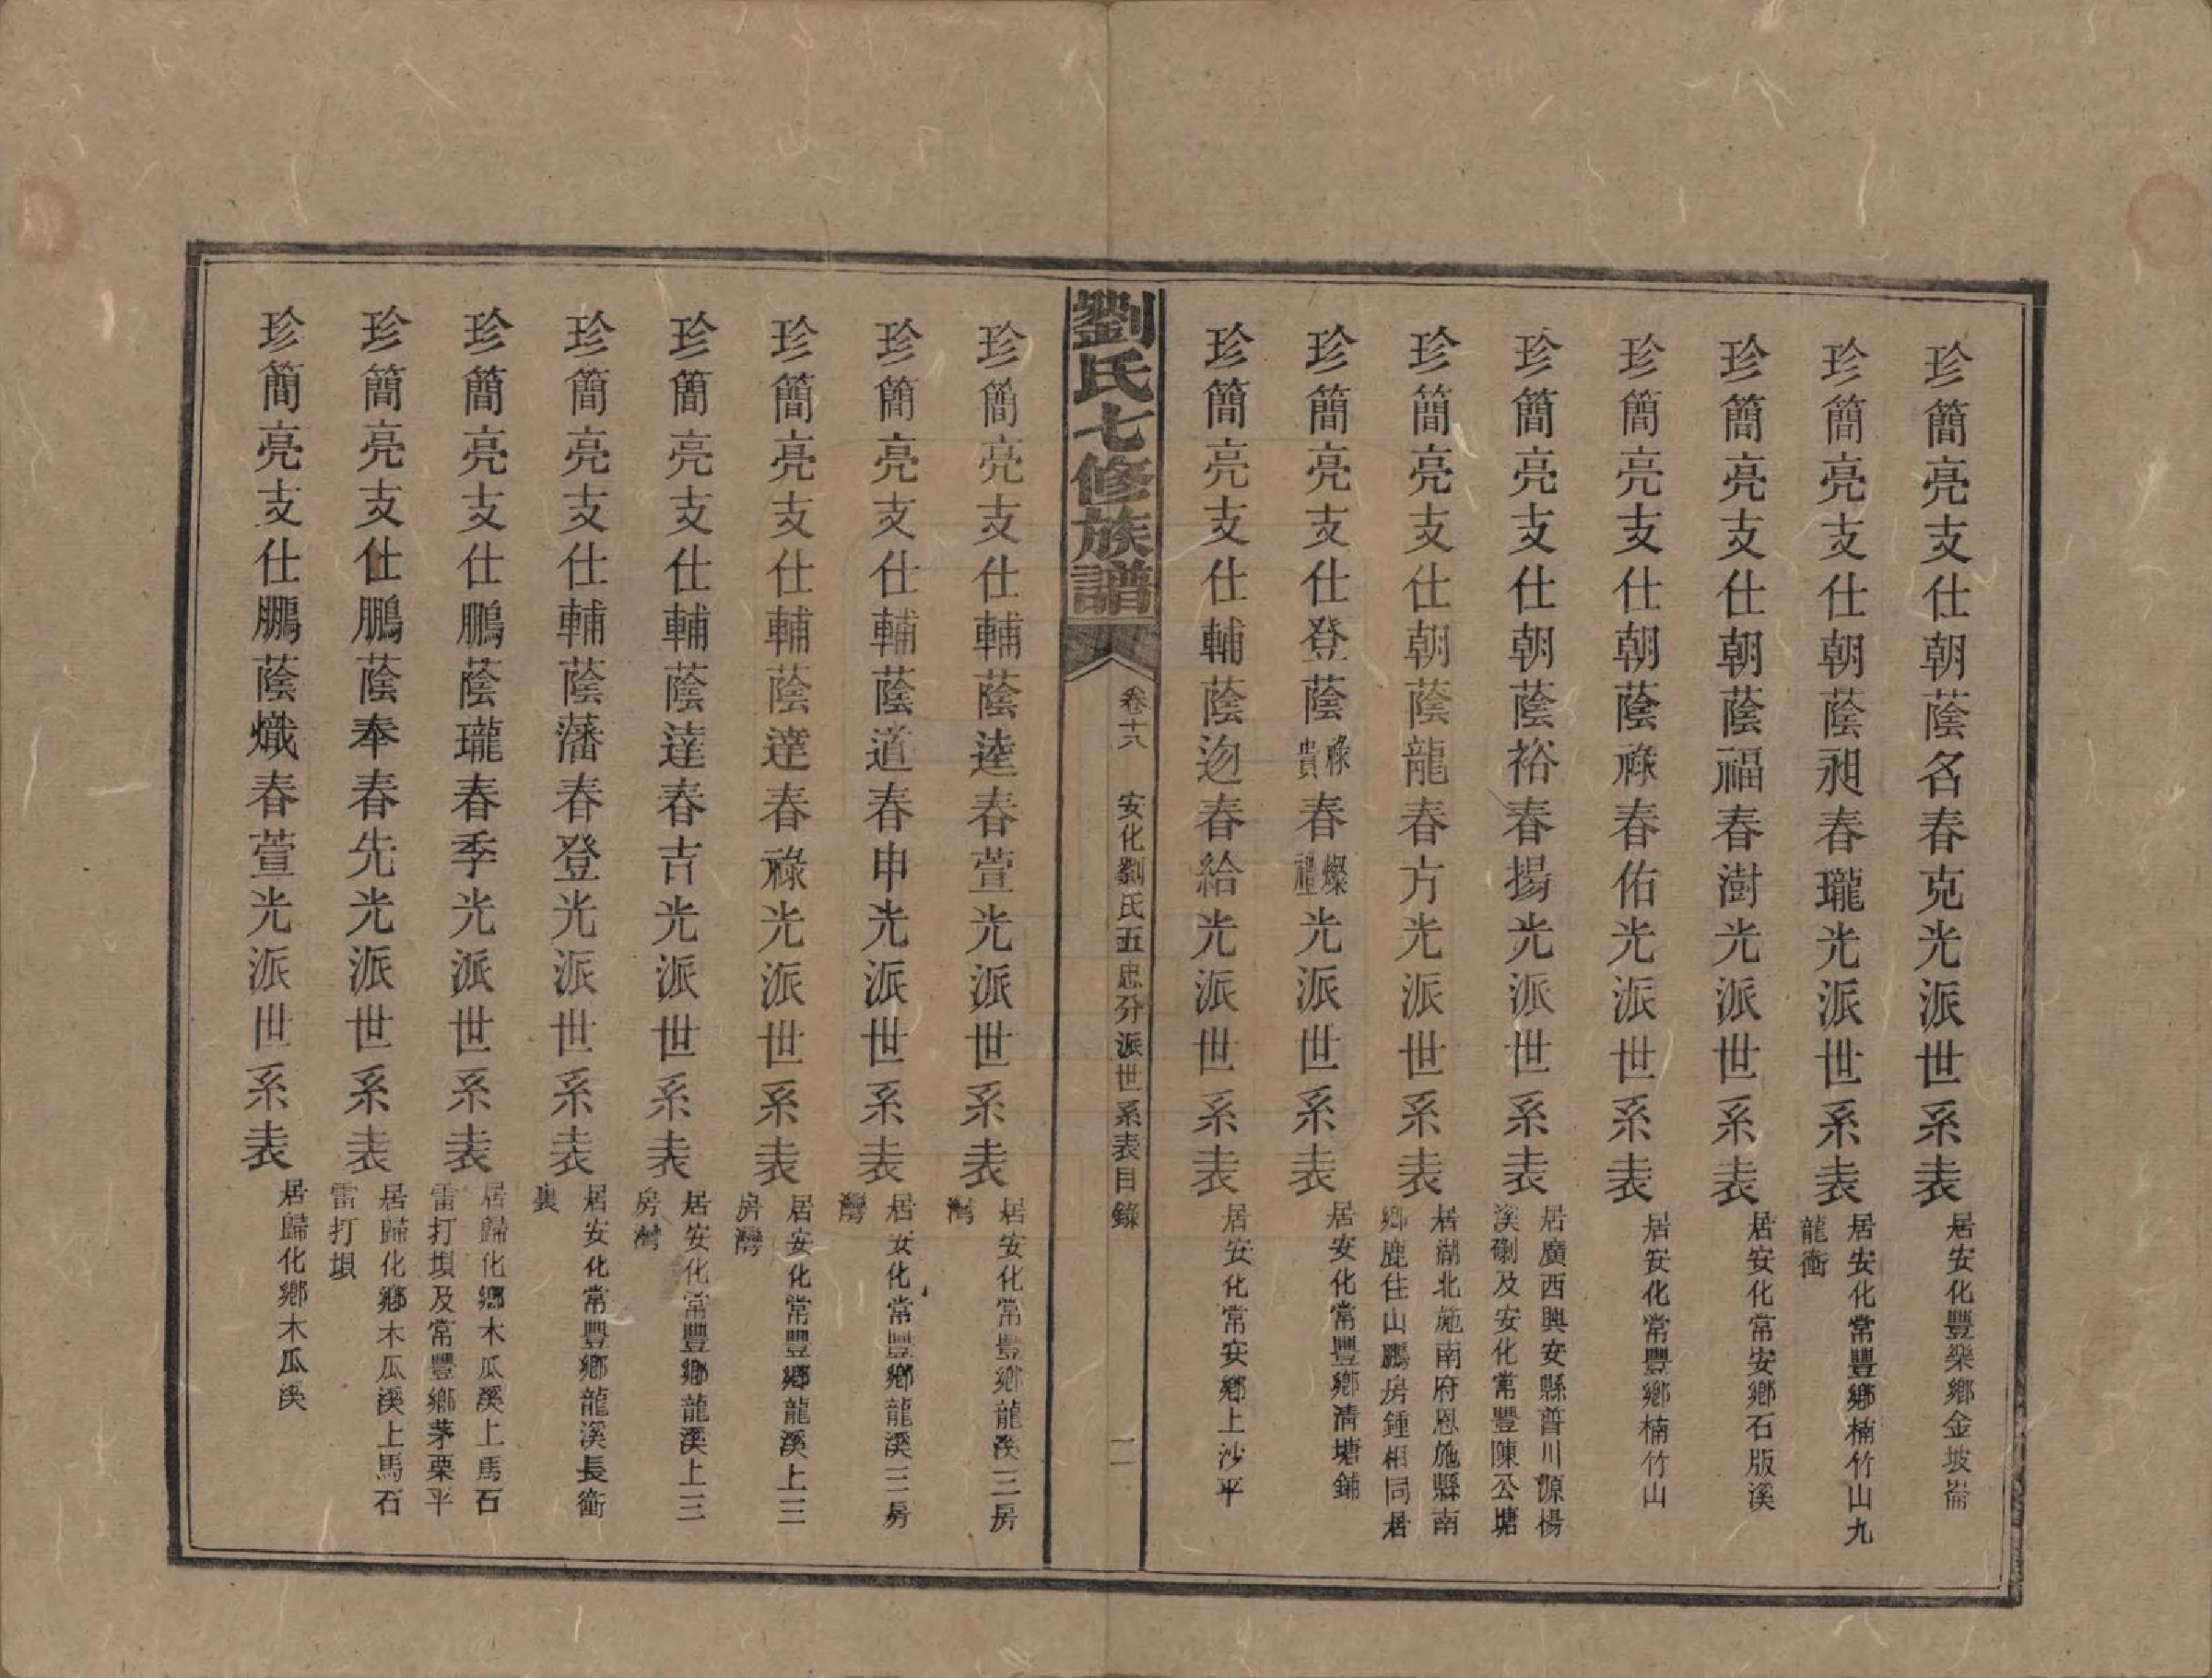 珍簡亮支仕朝蔭名春克光派世系表 居安化豐樂鄉金坡崙
珍簡亮支仕朝蔭昶春瓏光派世系表 居安化常豐鄉楠竹山九
龍衝
珍簡亮支仕朝蔭福春澍光派世系表 居安化常安鄉石版溪
珍簡亮支仕朝蔭祿春佑光派世系表 居安化常豐鄉楠竹山
珍簡亮支仕朝蔭裕春揚光派世系表 居廣西興安縣普川源楊
溪㓸及安化常豐陳公塘
珍簡亮支仕朝蔭龍春方光派世系表 居湖北施南府恩施縣南
鄉鹿住山鵬房鍾相同居
珍簡亮支仕登蔭祿貴春燦禮光派世系表 居安化常豐鄉清塘鋪
珍簡亮支仕輔蔭迩春給光派世系表 居安化常安鄉上沙平
劉氏七修族譜 卷十六 安化劉氏五忠分派世系表目錄 二
珍簡亮支仕輔蔭逵春萱光派世系表 居安化常豐鄉龍溪三房
灣
珍簡亮支仕輔蔭道春申光派世系表 居安化常豐鄉龍溪三房
灣
珍簡亮支仕輔蔭達春祿光派世系表 居安化常豐鄉龍溪上三
房灣
珍簡亮支仕輔蔭達春吉光派世系表 居安化常豐鄉龍溪上三
房灣
珍簡亮支仕輔蔭藩春登光派世系表 居安化常豐鄉龍溪長衝
裏
珍簡亮支仕鵬蔭瓏春季光派世系表 居歸化鄉木瓜溪上馬石
雷打壩及常豐鄉茅栗平
珍簡亮支仕鵬蔭奉春先光派世系表 居歸化鄉木瓜溪上馬石
雷打壩
珍簡亮支仕鵬蔭熾春萱光派世系表 居歸化鄉木瓜溪